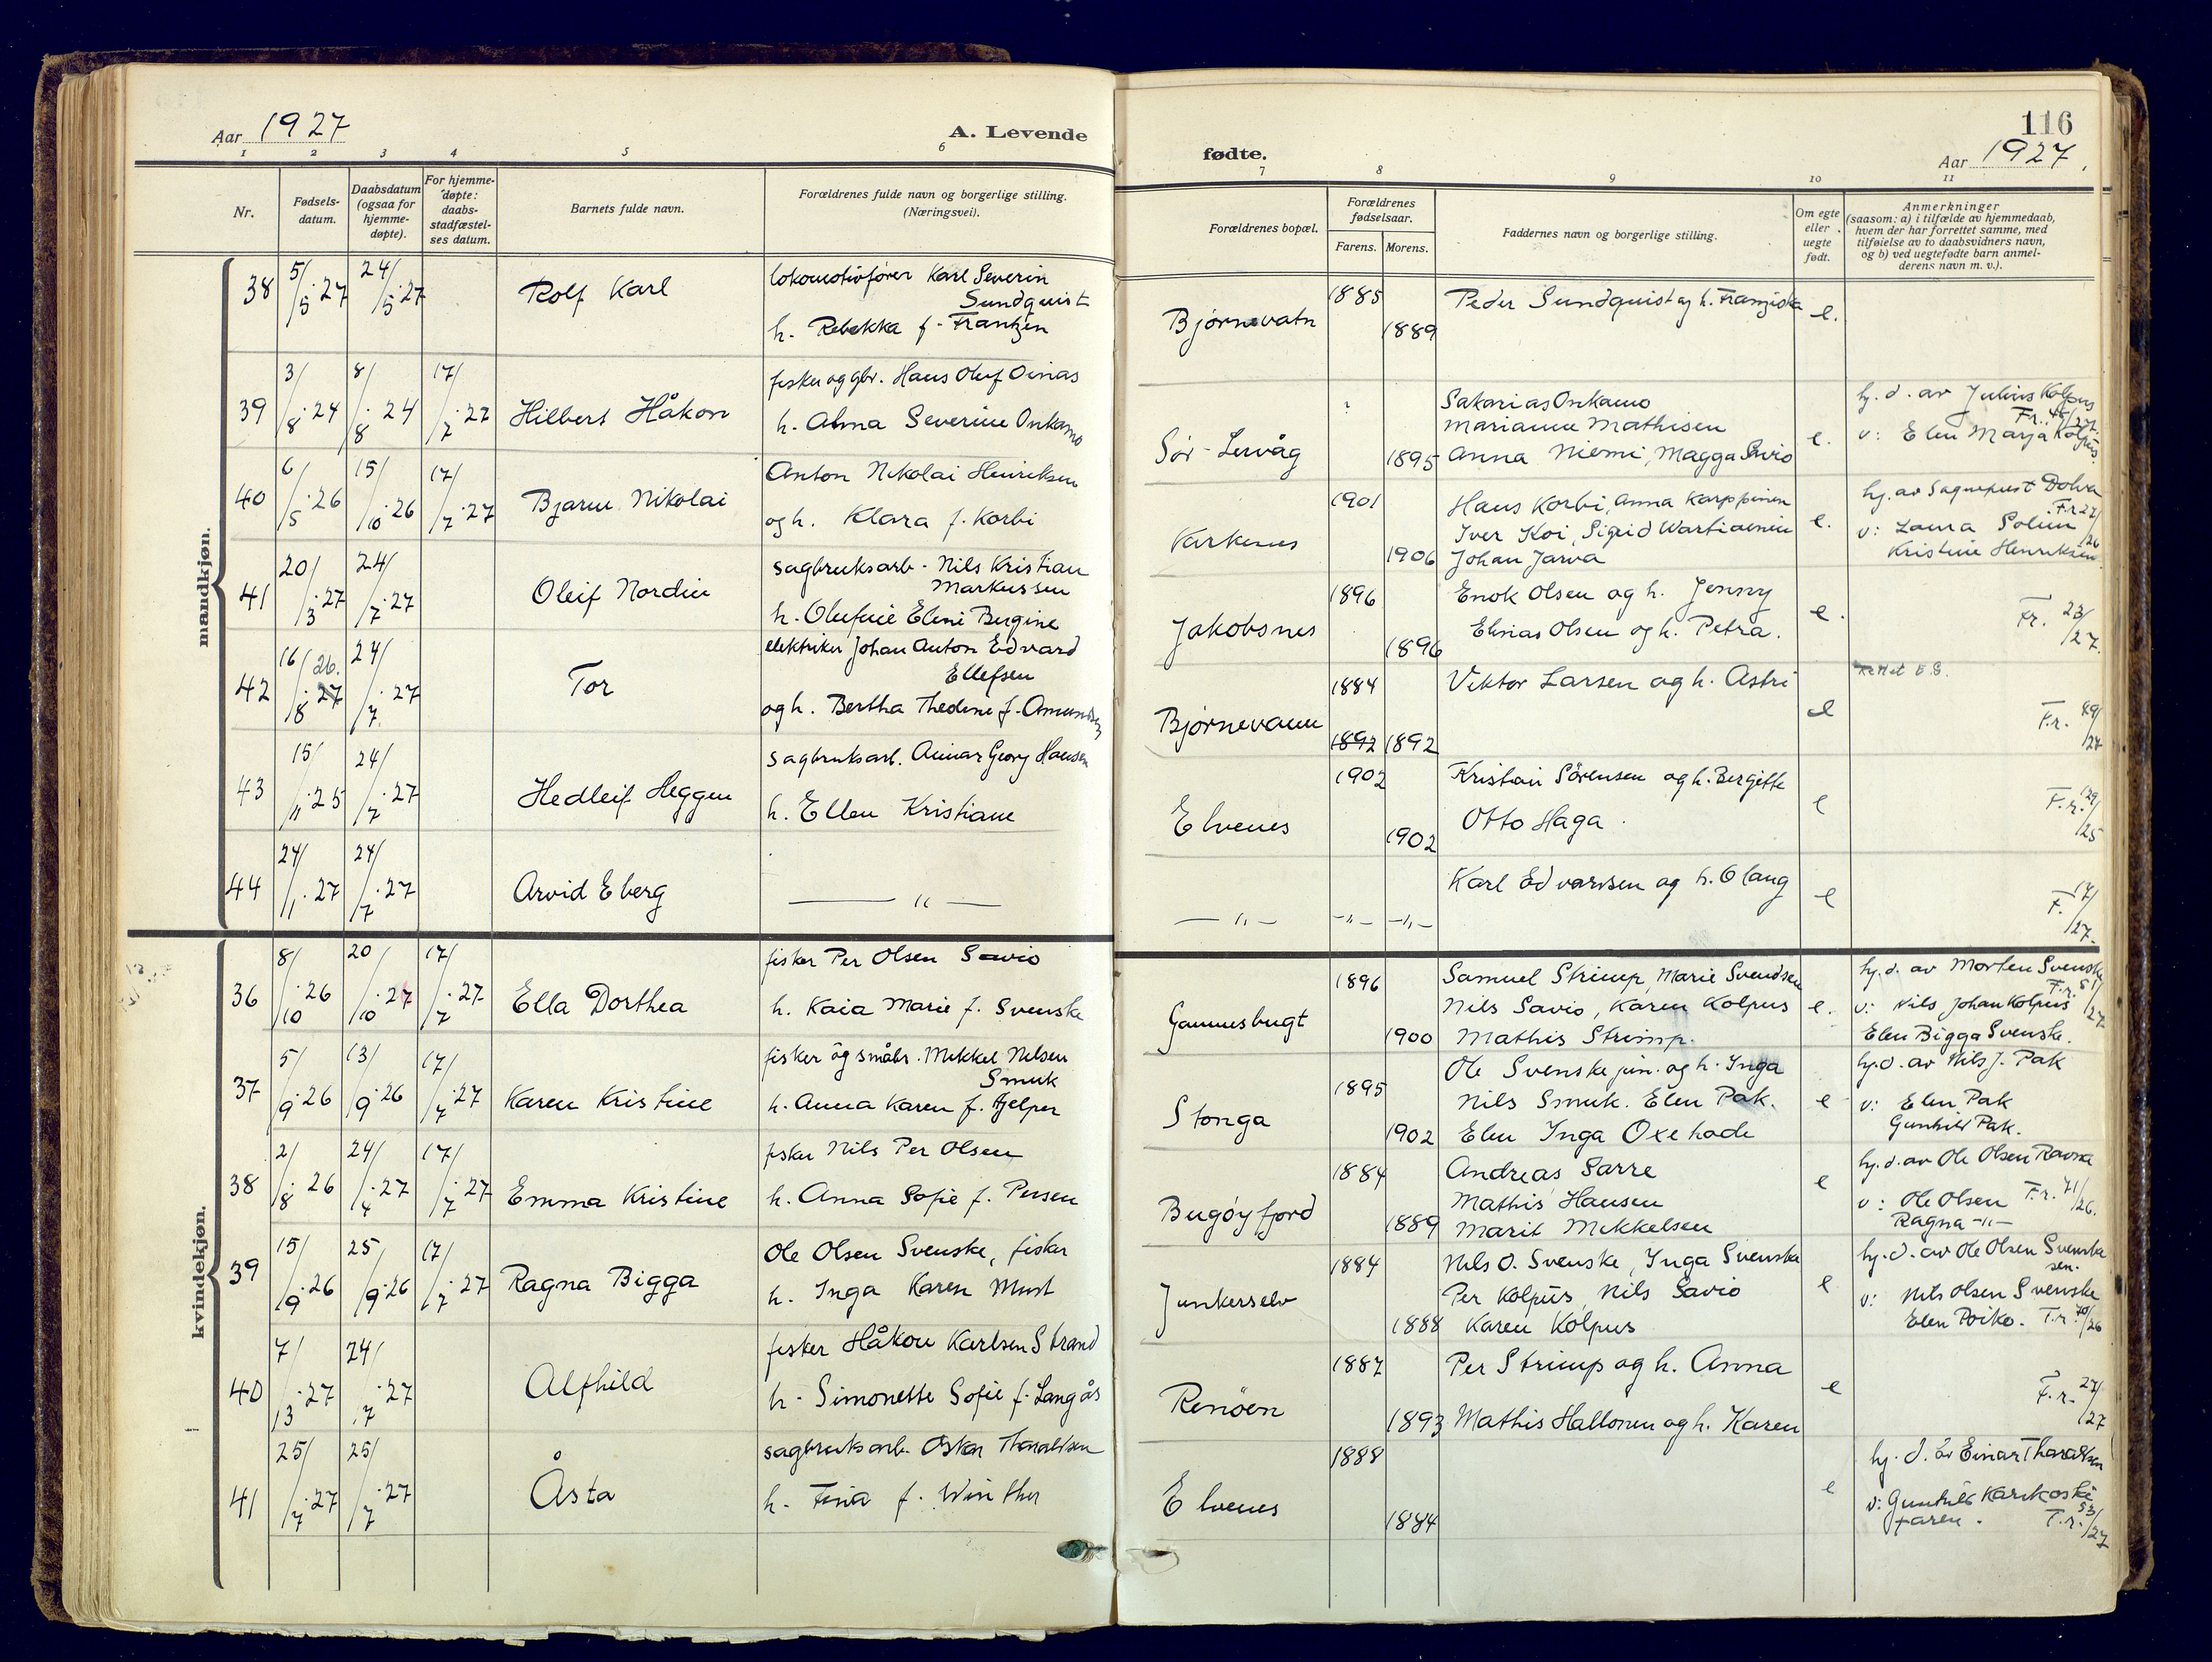 Aar 1927
A. Levende
1 2 3 4 5 6
Nr.
Fødsels-
datum.
Daabsdatum
(ogsaa for
hjemme-
døpte).
For hjemme-
døpte:
daabs-
stadfæstel-
ses datum.
Barnets fulde navn.
Forældrenes fulde navn og borgerlige stilling.
(Næringsvei).
mandkjøn.
38 5/5·27 24/5·27 Rolf Karl
lokomotivfører Karl Severin
Sundquist
h. Rebekka f. Frantzen
39 3/8·24 8/8·24 17/7·27 Hilbert Håkon
fisker og gbr. Hans Oluf Oinas
h. Alma Severine Onkamo
40 6/5·26 15/10·26 17/7·27 Bjarne Nikolai
Anton Nikolai Henriksen
og h. Klara f. Korbi
41 20/3·27 24/7·27 Oleif Nordin
sagbruksarb. Nils Kristian
Markussen
h. Olufine Eleni Bergine
42 16/8 26. 27 24/7·27 Tor
elektriker Johan Anton Edvard
Ellefsen
og h. Bertha Thedine f. Amundsen
43 15/11·25 24/7·27 Hedleif Heggen
sagbruksarb. Georg Hansen
h. Ellen Kristiane
44 24/1·27 24/7·27 Arvid Eberg
— " —
kvindekjøn.
36 8/10·26 20/10·27 17/7·27 Ella Dorthea
fisker Per Olsen Savio
h. Kaia Marie f. Svenske
37 5/9·26 13/9·26 17/7·27 Karen Kristine
fisker og småbr. Mikkel Nilsen
Smuk
h. Anna Karen f. Hjelper
38 2/8·26 24/4·27 17/7·27 Emma Kristine
fisker Nils Per Olsen
h. Anna Sofie f. Persen
39 15/9·26 25/9·26 17/7·27 Ragna Bigga
Ole Olsen Svenske, fisker
h. Inga Karen Must
40 7/3·27 24/7·27 Alfhild
fisker Håkon Karlsen Strand
h. Simonette Sofie f. Langås
41 25/7·27 25/7·27 Åsta
sagbruksarb. Oskar Tharaldsen
h. Fina f. Winther
116
fødte.
Aar 1927.
7 8 9 10 11
Forældrenes bopæl.
Forældrenes
fødselsaar.
Farens. Morens.
Faddernes navn og borgerlige stilling.
Om egte
eller
uegte
født.
Anmerkninger
(saasom: a) i tilfælde av hjemmedaab,
hvem der har forrettet samme, med
tilføielse av to daabsvidners navn,
og b) ved uegtefødte barn anmel-
derens navn m. v.).
Bjørnevatn 1885 1889
Peder Sundquist og h. Franziska e.
Sør-Lervåg ? 1895
Sakarias Onkamo
Marianne Mathisen
Anna Niemi, Magga Savio e.
hj. d. av Julius Kolpus
v: Elen Marja Kolpus
Karkenes 1901 1906
Hans Korbi, Anna Karppinen
Iver Koi, Sigrid
Johan Jarva e.
hj. av Dolva
v: Laura
Kristine Henriksen
Jakobsnes 1896 1896
Enok Olsen og h. Jenny
Elinas Olsen og h. Petra. e.
Fr. 23/27.
Bjørnevann 1884 1892 1892
Viktor Larsen og h. Astri e
Rettet E.S.
F.r. 49/27
Elvenes 1902 1902
Kristian Sørensen og h. Bergitte
Otto Haga. e
F.r. 129/25
— " — — " — — " —
Karl Edvardsen og h. Olaug e
F. 17/27.
Gammesbugt 1896 1900
Samuel Strimp, Marie Svendsen
Nils Savio, Karen Kolpus
Mathis Strimp. e.
hj. d. av Morten Svenske
F.r. 51/27
v: Nils Johan Kolpus
Elen Bigga Svenske.
Stonga 1895 1902
Ole Svenske jun. og h. Inga
Nils Smuk. Elen Pak.
Elen Inga Oxehode e
hj.d. av Nils J. Pak
v: Elen Pak
Gunhild Pak.
Bugøyfjord 1884 1889
Andreas Sarre
Mathis Hansen
Marit Mikkelsen e
hj. d. av Ole Olsen Ravna
v: Ole Olsen F.r. 71/26.
Ragna — " —
Junkerselv 1884 1888
Nils O. Svenske, Inga Svenske
Per Kolpus, Nils Savio
Karen Kolpus e
hj. d. av Ole Olsen Svenske
sen.
v: Nils Olsen Svenske
Elen Poiko. F.r. 70/26
Renøen 1887 1893
Per Strimp og h. Anna
Mathis Hallonen og h. Karen e
F.r. 27/27
Elvenes 1888 1884 e
hj. d. av Einar Tharaldsen
v: Gunhild Karikoski
Karen. F.r. 53/27